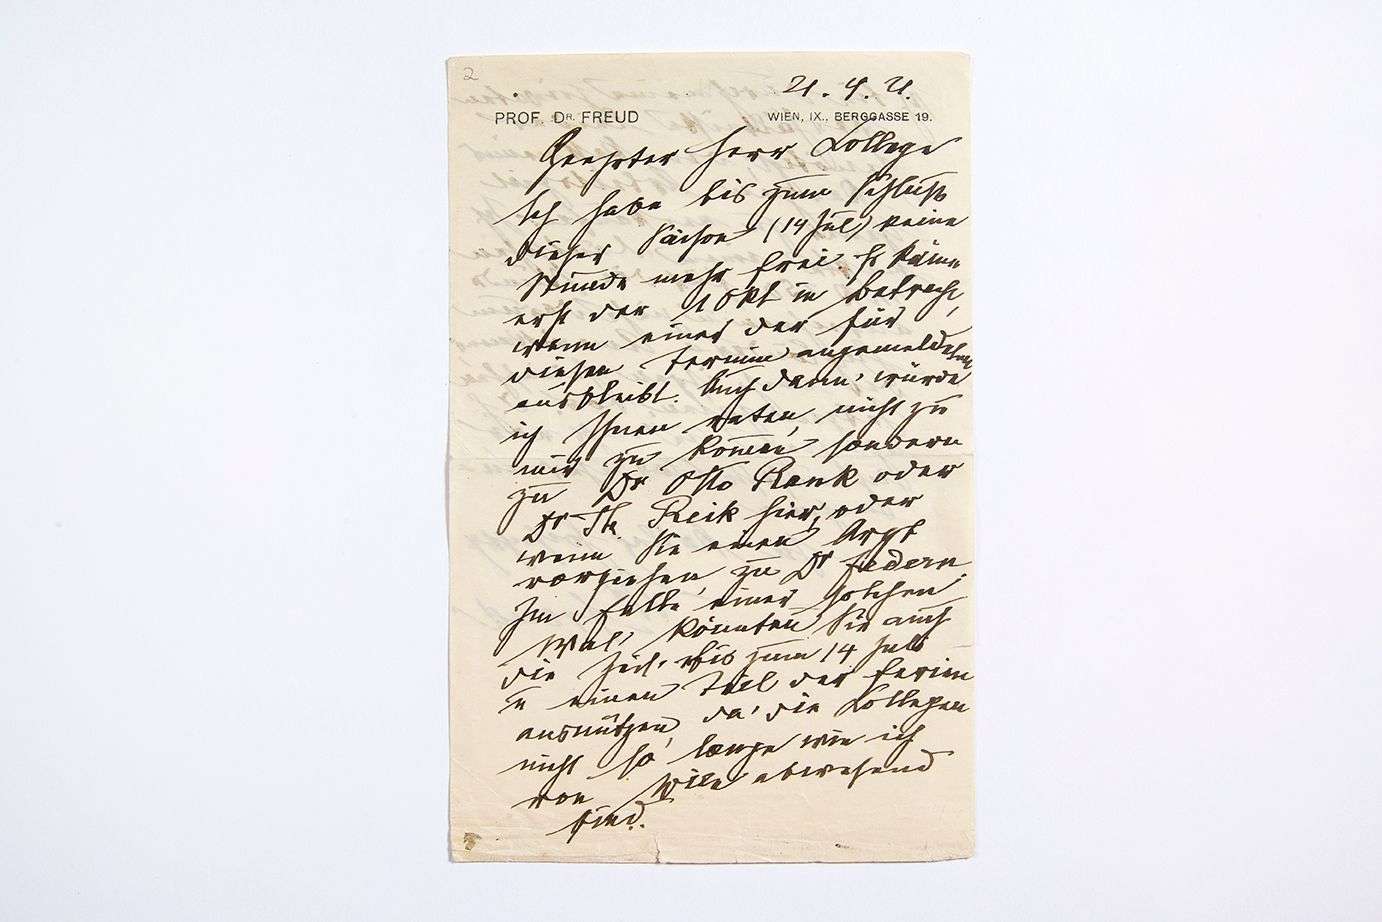 2
21. 4. 21.
PROF. DR. FREUD WIEN, IX., BERGGASSE 19.
Geehrter Herr College
Ich habe bis zum Schluß
dieser Saison (14 Jul) keine
Stunde mehr frei. Es käme
erst der 1 Okt in Betracht,
wenn einer der für
diesen Termin angemeldeten
ausbleibt. Auch dann würde
ich Ihnen raten, nicht zu
mir zu kommen sondern
zu Dr Otto Rank oder
Dr Th Reik hier, oder
wenn Sie einen Arzt
vorziehen, zu Dr Federn.
Im Falle einer solchen
Wal, könnten Sie auch
die Zeit bis zum 14 Juli
u einen Teil der Ferien
ausnützen, da die Collegen
nicht so lange wie ich
von Wien abwesend
sind.